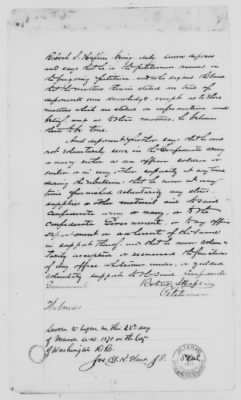 Robert S. Hopkins being duly sworn deposes
and says that he is the petitioner named in
the foregoing petition and who signed the same
that the matters therein stated are true of
deponents own knowledge except as to those
matters which are stated on information and
belief, and as to those matters, he believes
them to be true.
And deponent further says that he did
not voluntarily serve in the Confederate army
or navy either as an officer soldier or
sailor or in any other capacity at any time
during the rebellion: that he never at any
time furnished voluntarily any stores
supplies or other material aid to said
Confederate army or navy, or to the
Confederate Government or to any officer
department or adherents of the same
in support thereof, and that he never volun-
tarily accepted or exercised the functions
of any office whatsoever under, or yielded
voluntary support to the said Confederate
Government
Petitioner
Witness
Sworn to before me this 28th day
of March A.D. 1871 in the City
of Washington D.C.
J.P.
Seal